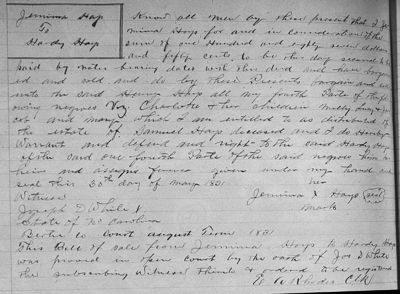 Jemima Hays
To
Hardy Hays
Know all men by these present that I Je
mima Hays for and in consideration of the
sum of one Hundred and eighty seven dollars
and fifty cents to be this day secured to be
paid by note bearing date with this deed and have bargain
ed and sold and do by these Presents bargain and
unto the said Hays all my fourth Parte of the
negroes Viz Charlotte & her children Milly Ja
cob and Mary which I am entitled to as distributee of
the estate of Samuel Hays deceased and I do hereby
Warrant and defend and right to the said Hardy Hays
of the said one fourth Parte of the said negroes him
heirs and assigns forever given under my hand and
seal this day of 1831
her
Witness
Jemima X Hays Seal
mark
Joseph D White
State of No Carolina
Bertie Co Court august Term 1831
This Bill of sale from Jemima Hays to Hardy Hays
was proved in open court by the oath of Jos D White
the subscribing witness thereto & ordered to be registered
E A Rhodes Clk